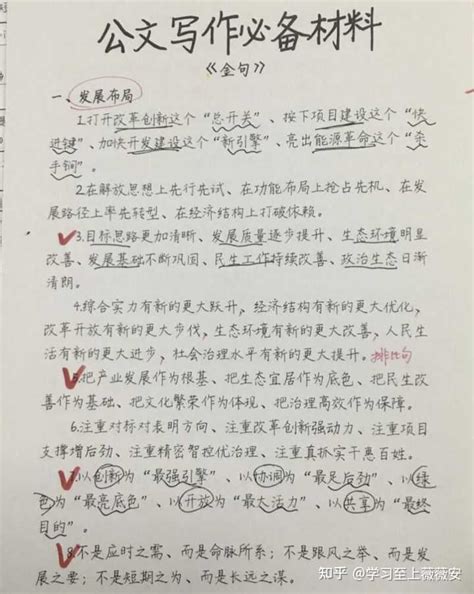 公文写作必备材料
《金句》
一、发展布局
1.打开改革创新这个“总开关”、按下项目建设这个“快
进键”、加快开发建设这个“新引擎”、亮出能源革命这个“杀
手锏”。
2.在解放思想上先行先试、在功能布局上抢占先机、在发
展路径上率先转型、在经济结构上打破依赖。
3.目标思路更加清晰、发展质量逐步提升、生态环境明显
改善、发展基础不断巩固、民生工作持续改善、政治生态日渐
清朗。
4.综合实力有新的更大跃升，经济结构有新的更大优化，
改革开放有新的更大步伐，生态环境有新的更大改善，人民生
活有新的更大进步，社会治理水平有新的更大提升。排比句
5.把产业发展作为根基、把生态宜居作为底色、把民生改
善作为基础、把文化繁荣作为体现、把治理高效作为保障。
6.注重对标对表明方向、注重改革创新强动力、注重项目
支撑增后劲、注重精密智控优治理、注重真抓实干惠百姓。
7.以创新为“最强引擎”、以协调为“最足后劲”、以绿
色为“最亮底色”、以开放为“最大活力”、以共享为“最终
目的”。
8.不是应时之需、而是命脉所系；不是跟风之举、而是发
展之要；不是短期之为、而是长远之谋。
知乎 @学习至上薇薇安